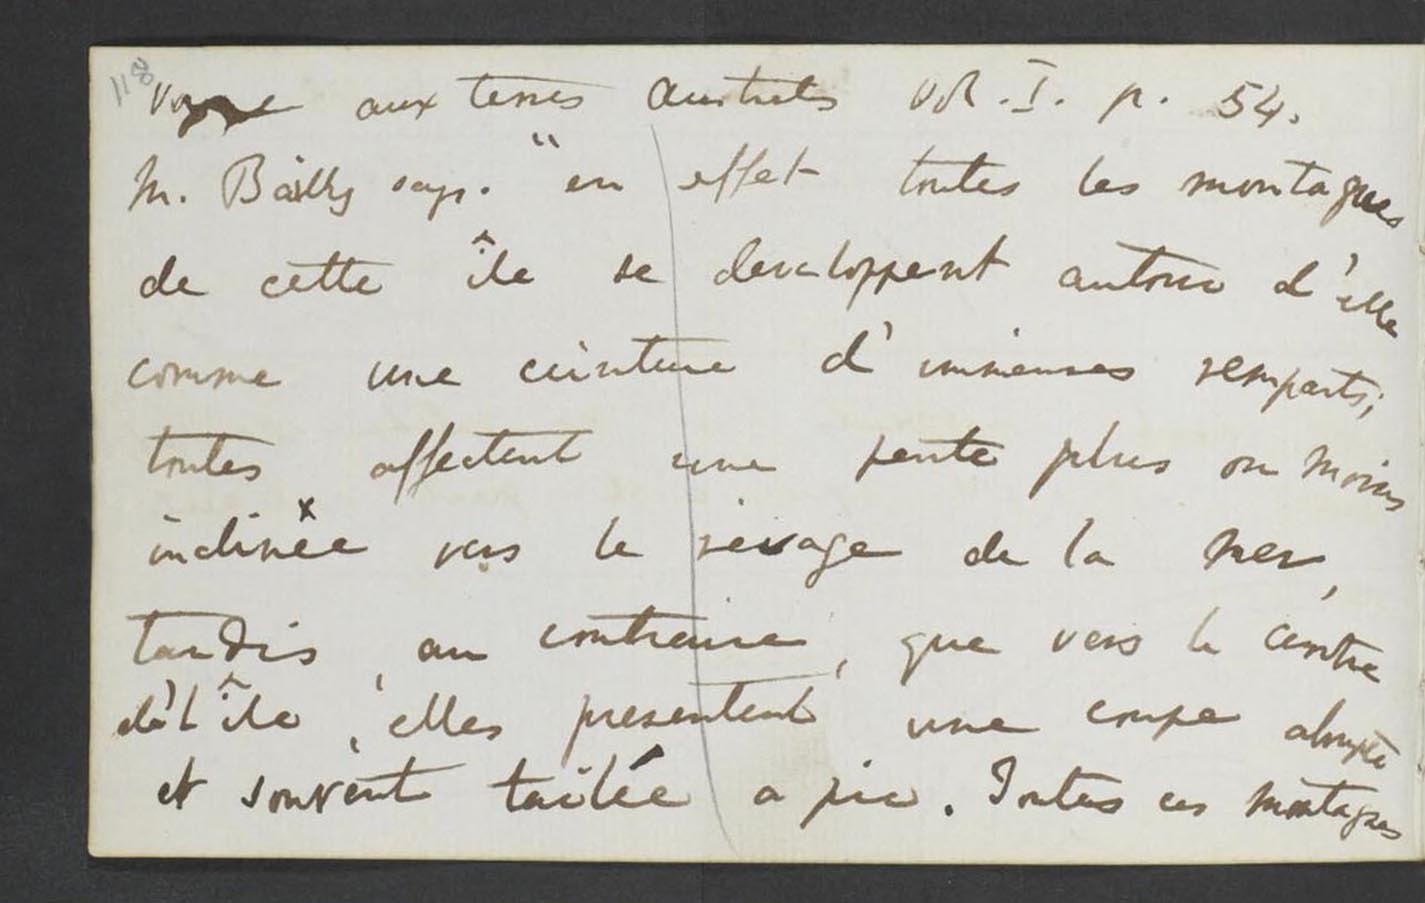 118
Voyage aux terres Australes Vol. I. p. 54.
M. Bailly says. "en effet toutes les montagnes
de cette île se developpent autour d'elle
comme une ceinture d'immenses remparts;
toutes affectent une pente plus ou moins
inclinée x vers le rivage de la mer,
tandis, au contraire, que vers le centre
de l'île, elles presentent une coupe abrupte
et souvent taillée a pic. Toutes ces montagnes